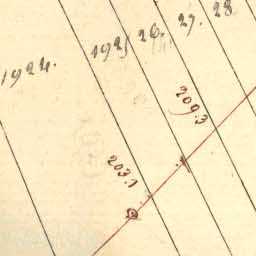 1924. 1925 26. 27. 28
209.3
203.1